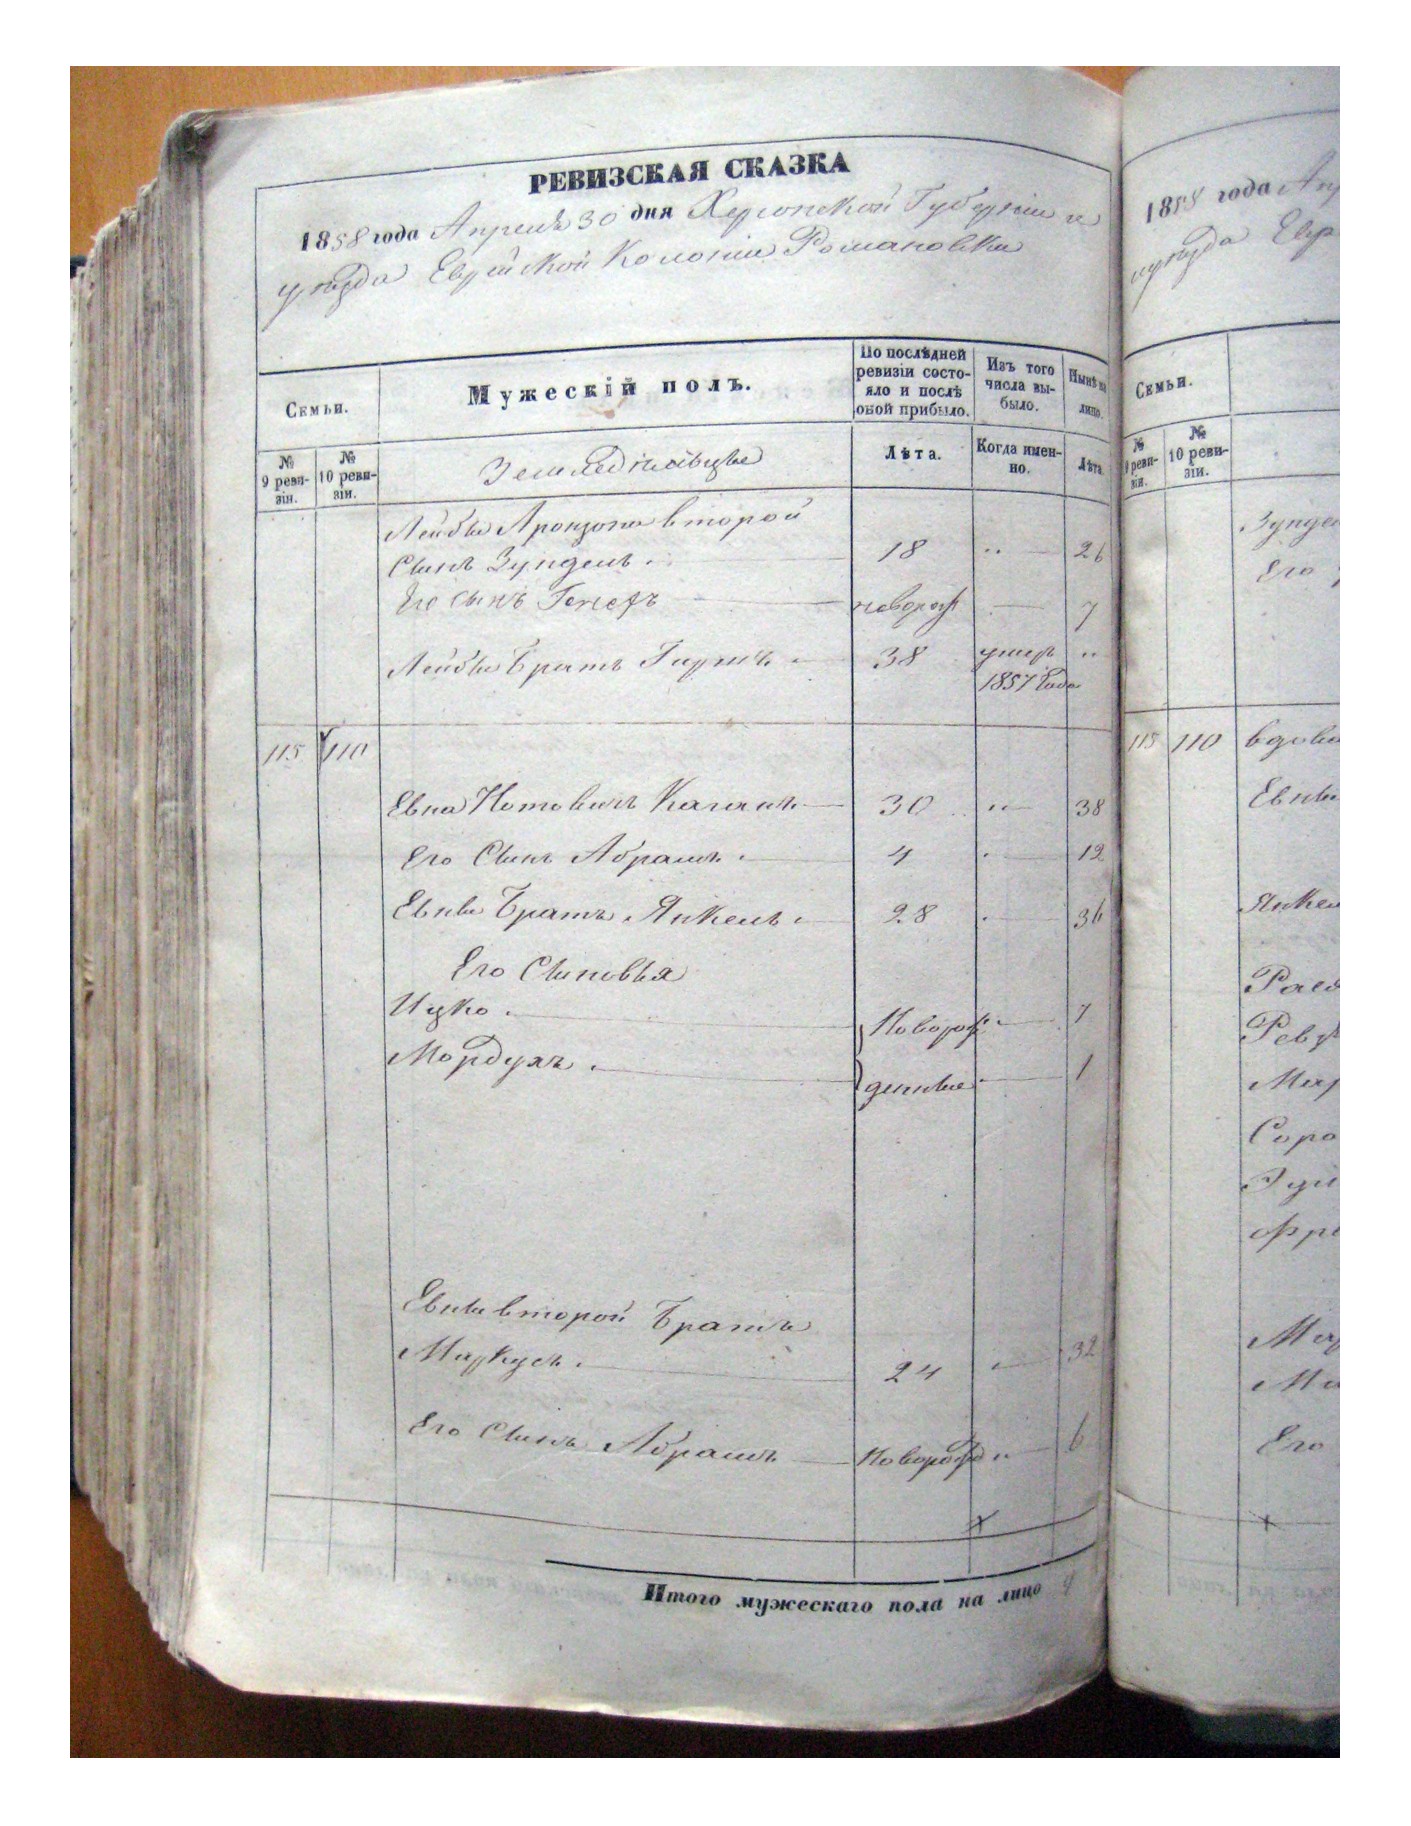 РЕВИЗСКАЯ СКАЗКА
1858 года Апреля 30 дня Херсонской Губерніи и
уѣзда Еврейской Колоніи Романовки
Семьи.
Мужескій полъ.
По послѣдней ревизіи состояло и послѣ оной прибыло.
Изъ того числа выбыло.
Нынѣ на лицо.
№ 9 ревизіи.
№ 10 ревизіи.
Земледѣльцы
Лѣта.
Когда именно.
Лѣта.
Лейбы Аронзона второй
Сынъ Зундель 18 26
Его сынъ новорож 7
Лейбы Братъ 38 умеръ
1857 Года
115 110
Евна Нотовичъ Каганъ 30 38
Его Сынъ Абрамъ 4 12
Евны Братъ Янкель 28 36
Его Сыновья
Ицко Новорож 7
Мордухъ денные 1
Евны второй Братъ
Маркусъ 24 32
Его Сынъ Абрамъ Новорожд 6
Итого мужескаго пола на лицо 9
1858 года Апр
уѣзда Евр
Семьи.
№ 9 ревизіи.
№ 10 ревизіи.
Зунде
Его
115 110 вдова
Евны
Янкел
Ревз
Мар
Соро
Мар
Его